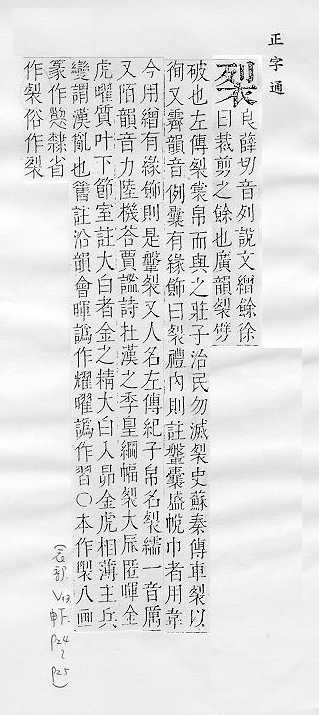 正字通
裂 良薛切音列說文繒餘徐
曰裁剪之餘也廣韻裂劈
破也左傳裂裳帛而與之莊子治民勿滅裂史蘇秦傳車裂以
徇又霽韻音例囊有緣飾曰裂禮內則註鞶囊盛帨巾者用韋
今用繒有緣飾則是鞶裂又人名左傳紀子帛名裂繻一音厲
又陌韻音力陸機答賈謐詩杜漢之季皇綱幅裂大辰匿暉金
虎曜質叶下節室註大白者金之精大白入昴金虎相薄主兵
變謂漢亂也舊註沿韻會暉譌作耀曜譌作習○本作㓞八画
篆作
隸省
作裂俗作裂
(衣部
V13
申下
P24
~
P25)